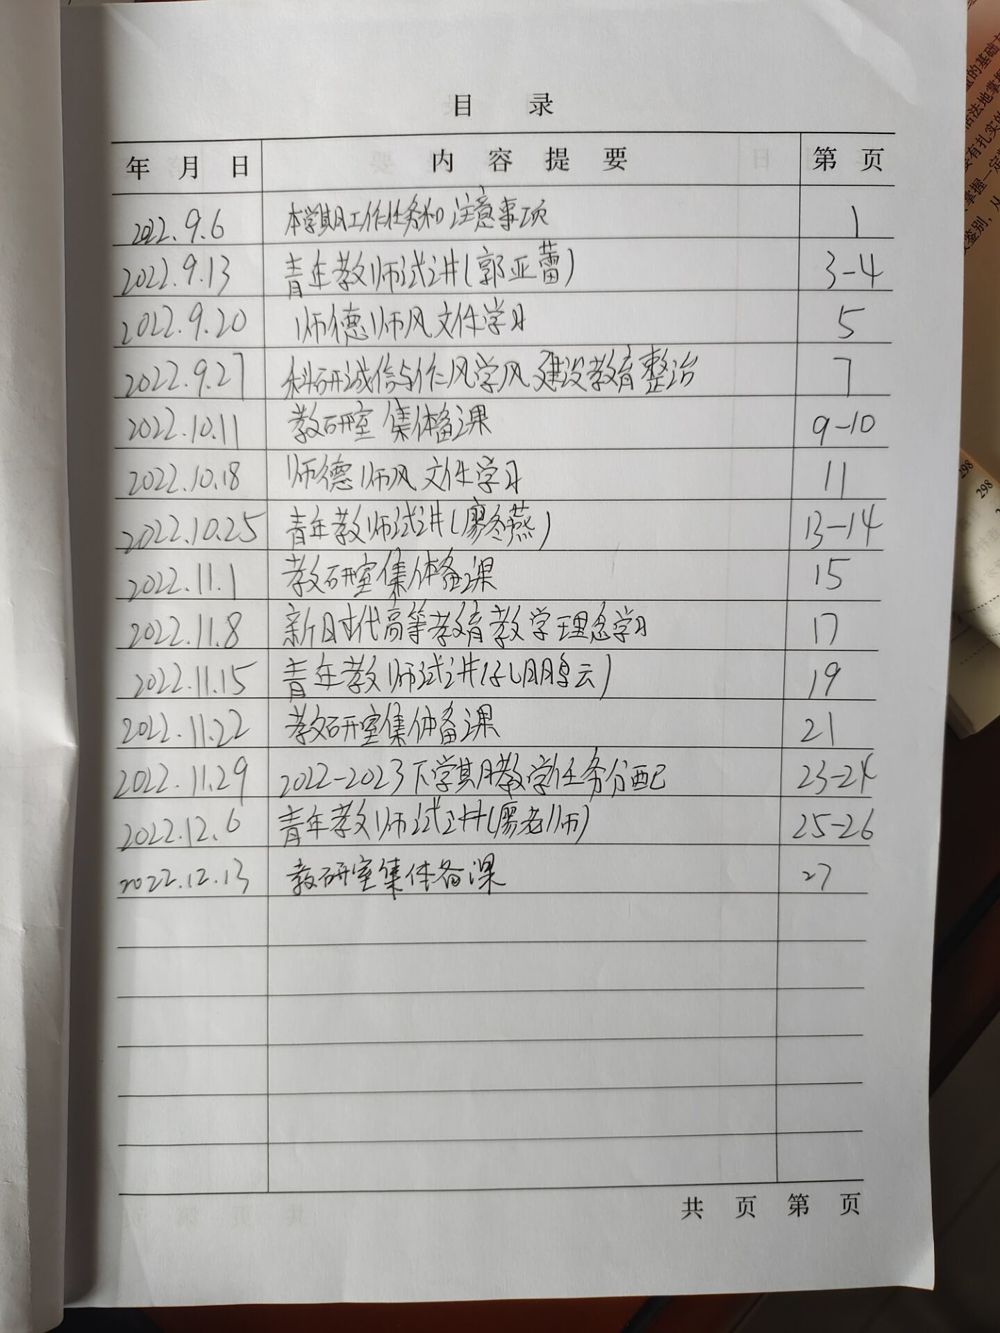 目 录
年 月 日 内 容 提 要 第 页
2022.9.6 本学期工作任务和注意事项 1
2022.9.13 青年教师试讲(郭亚蕾) 3-4
2022.9.20 师德师风文件学习 5
2022.9.27 科研诚信与作风学风建设教育整治 7
2022.10.11 教研室集体备课 9-10
2022.10.18 师德师风文件学习 11
2022.10.25 青年教师试讲(廖冬燕) 13-14
2022.11.1 教研室集体备课 15
2022.11.8 新时代高等教育教学理念学习 17
2022.11.15 青年教师试讲(孔明云) 19
2022.11.22 教研室集体备课 21
2022.11.29 2022-2023下学期教学任务分配 23-24
2022.12.6 青年教师试讲(廖老师) 25-26
2022.12.13 教研室集体备课 27
共 页 第 页